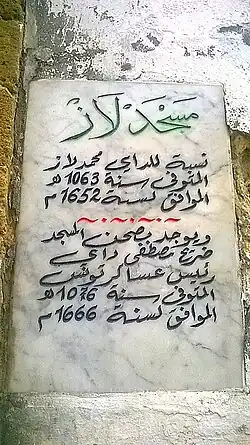 مسجد لاز
نسبة للداي محمد لاز
المتوفى سنة 1063 هـ
الموافق لسنة 1652 م
ويوجد بصحن المسجد
ضريح مصطفى داي
رئيس عساكر تونس
المتوفي سنة 1076 هـ
الموافق لسنة 1666 م